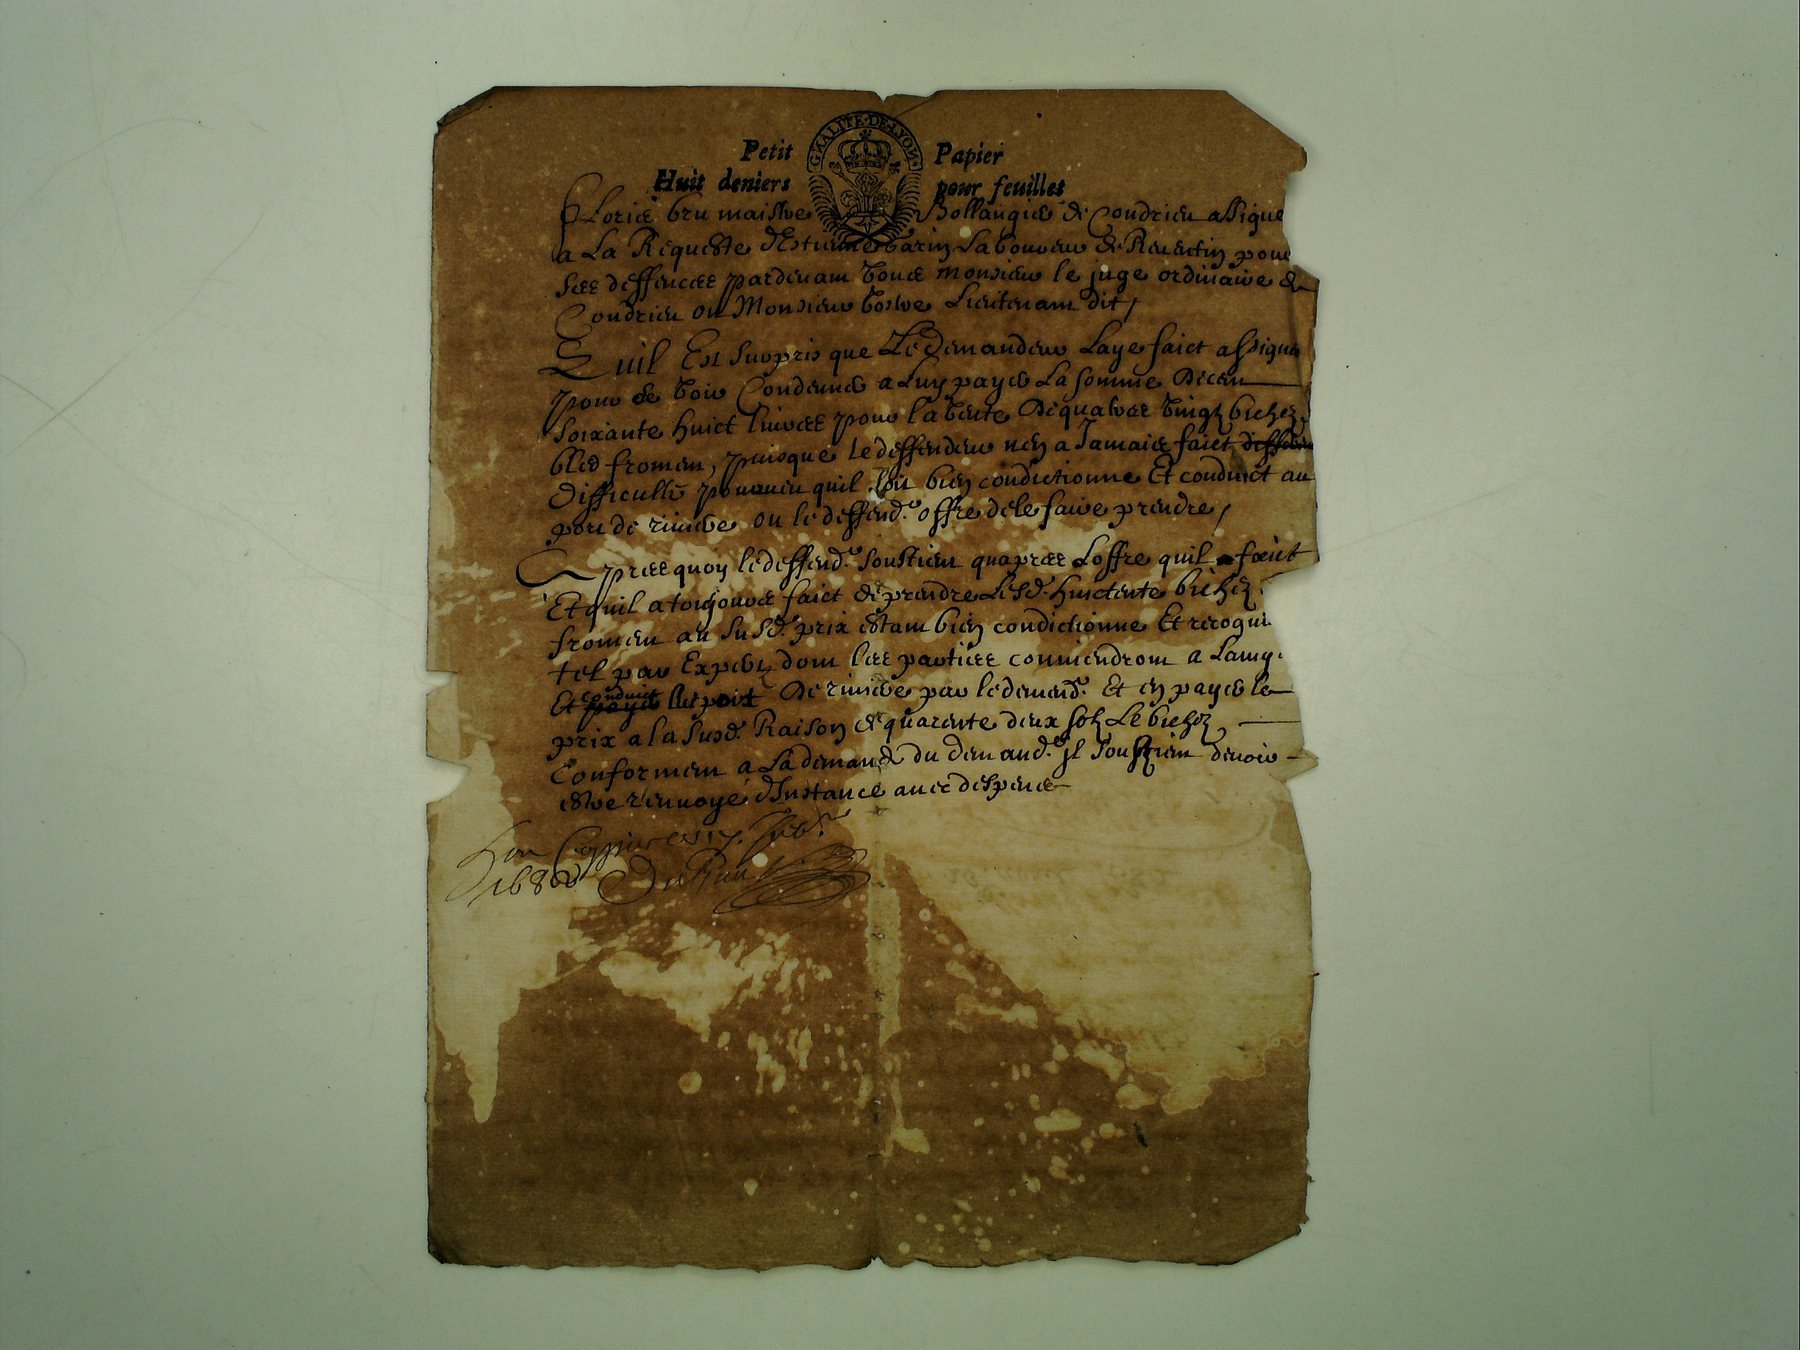 GNALITE·DE·LYON
Petit Papier
Huit deniers pour feuillet
bru maistre Bollangier de Condrieu assigne
a La Requeste dEstienne Laboureur de Reventin pour
ses deffences pardevant vous Monsieur le juge ordinaire de
Condrieu ou Monsieur vostre Lieutenant dit,
Quil Est surpris que Le Demandeur Laye faict assigner
pour se voir Condemner a Luy payer La somme de cent
soixante huict livres pour la vente de quatre vingtz bichez
bled froment, puisque le deffendeur nen a Jamais faict
Difficulté pourveu quil soit bien condictionne Et conduict au
port de riviere ou le deffend.r offre de le faire prendre,
Apres quoy le deffend.r soustient quapres Loffre quil faict
Et quil a tousjours faict de prendre Lesd. huictente bichez
froment au susd. prix estant bien condictionne Et recognu
tel par Expertz dont les parties conviendront a Lamy
Et conduict De riviere par le demend.r Et en payer le
prix a la susd. Raison de quarente deux solz Le bichez
Conformem a La demande du demand.r jl soustient devoir
estre renvoyé dInstance avec despens